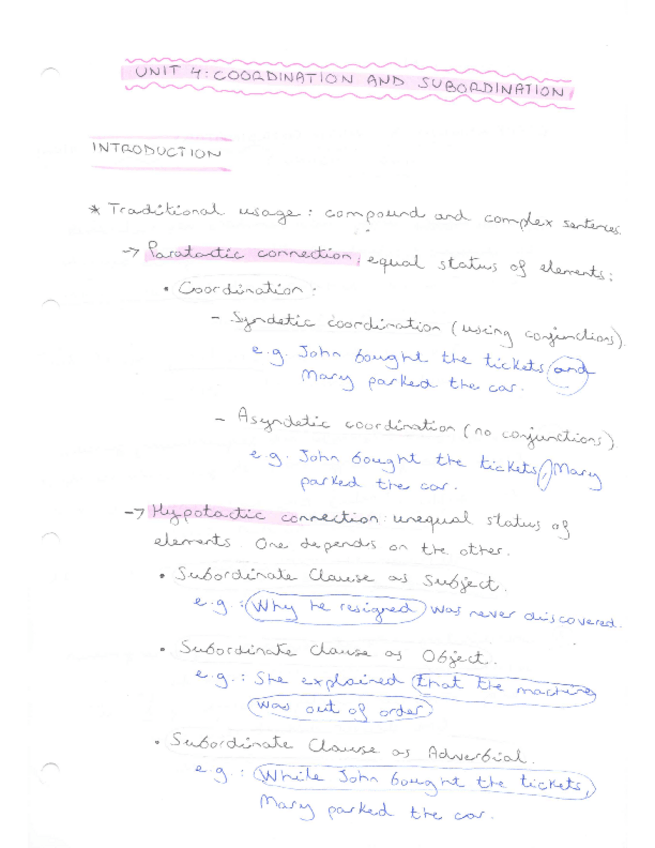 UNIT 4: COORDINATION AND SUBORDINATION
INTRODUCTION
* Traditional usage: compound and complex sentences.
-> Paratactic connection: equal status of elements:
• Coordination:
- Syndetic coordination (using conjunctions).
e.g. John bought the tickets and
Mary parked the car.
- Asyndetic coordination (no conjunctions).
e.g. John bought the tickets, Mary
parked the car.
-> Hypotactic connection: unequal status of
elements. One depends on the other.
• Subordinate Clause as Subject.
e.g.: Why he resigned was never discovered.
• Subordinate Clause as Object.
e.g.: She explained that the machine
was out of order.
• Subordinate Clause as Adverbial.
e.g.: While John bought the tickets,
Mary parked the car.